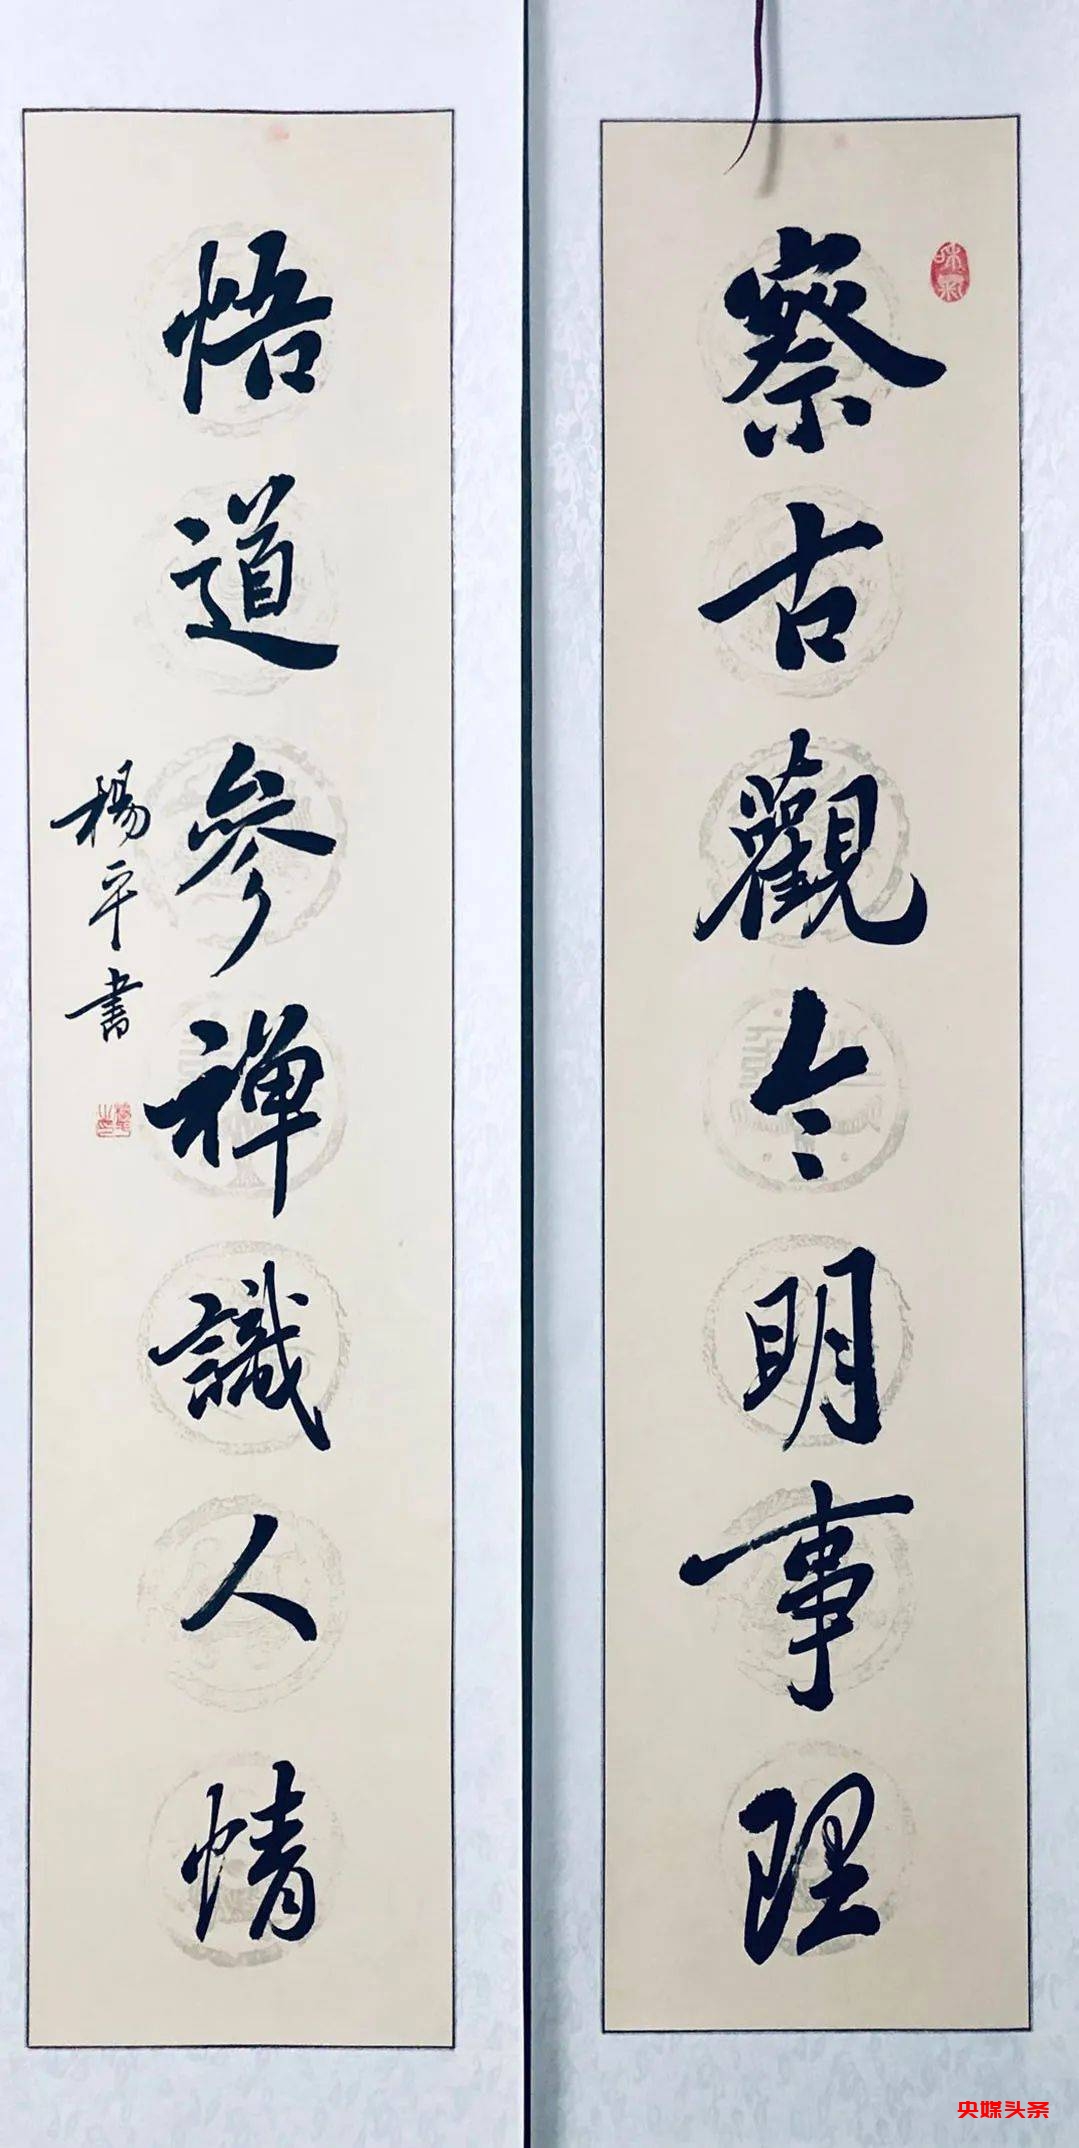 察古觀今明事理
悟道參禪識人情
楊平書
央媒头条